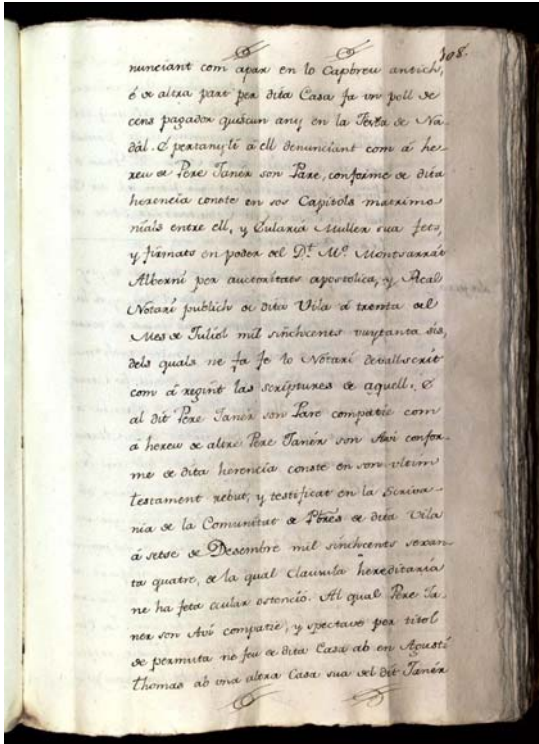 108.
nunciant com apar en lo Capbreu antich,
é de altra part per dita Casa fa un poll de
cens pagador quiscun any en la Festa de Na-
dal. É pertanyli á ell denunciant com á he-
reu de Pere Janér son Pare, conforme de dita
herencia conste en sos Capitols matrimo
nials entre ell, y Eularia Muller sua fets,
y firmats en poder del Dt. Mº. Montserrat
Alberni per auctoritats apostolica, y Real
Notari publich de dita Vila á trenta del
Mes de Juliol mil sinchcents vuytanta sis,
dels quals ne fa fe lo Notari devallscrit
com á regint las scriptures de aquell. É
al dit Pere Janér son Pare compatie com
á hereu de altre Pere Janér son Avi confor-
me de dita herencia conste en son ultim
testament rebut, y testificat en la Scriva-
nia de la Comunitat de Pbres de dita Vila
á setse de Desembre mil sinchcents sexan
ta quatre, de la qual Clausula hereditaria
ne ha feta ocular ostenció. Al qual Pere Ja-
nér son Avi compatie, y spectave per titol
de permuta ne feu de dita Casa ab en Agustí
Thomas ab una altra Casa sua del dit Janér